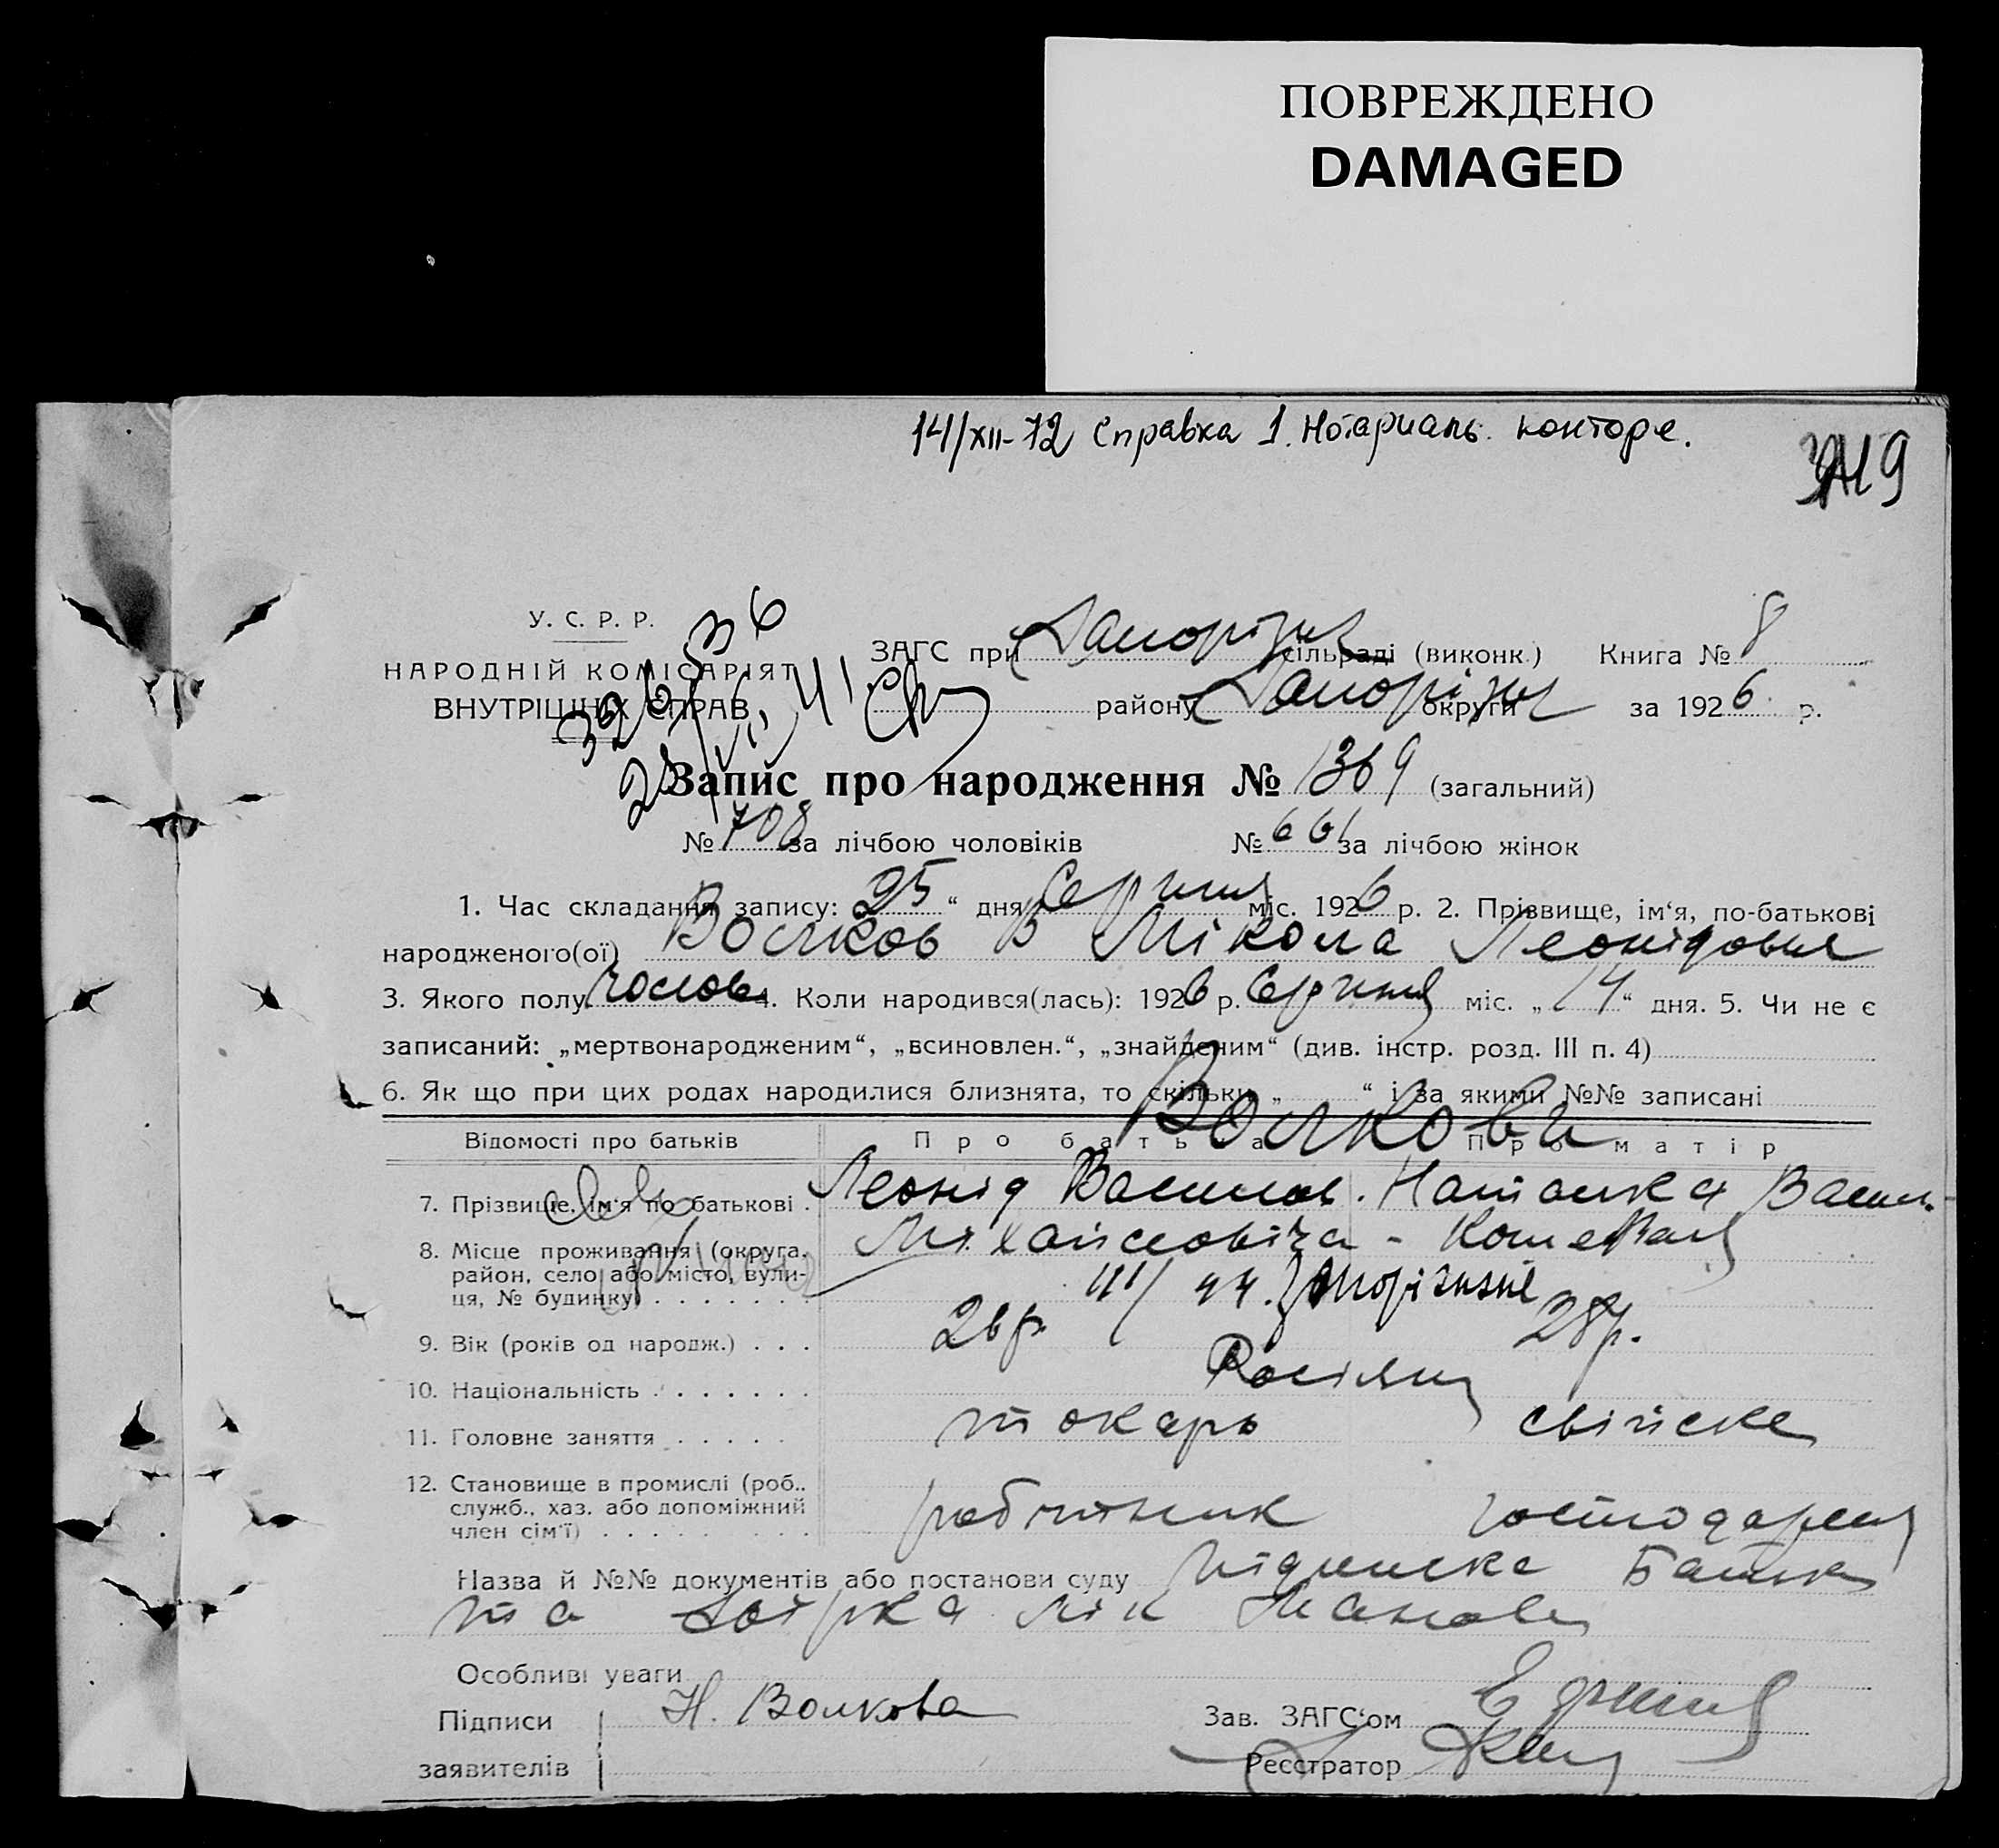 ПОВРЕЖДЕНО
DAMAGED
14/XII-72 Справка 1. Нотариаль. конторе.
У. С. Р. Р.
НАРОДНІЙ КОМІСАРІЯТ
ВНУТРІШНІХ СПРАВ
ЗАГС при Запорізьк сільраді (виконк.) Книга № 8
району Запорізьк округи за 1926 р.
Запис про народження № 1369 (загальний)
№ 708 за лічбою чоловіків № 661 за лічбою жінок
1. Час складання запису: 25 “ дня Серпня міс. 1926 р. 2. Прізвище, ім‘я, по-батькові
народженого(ої) Волков Мікола Леонідович
3. Якого полу чолов 4. Коли народився(лась): 1926 р. Серпня міс. „ 14 “ дня. 5. Чи не є
записаний: „мертвонародженим“, „всиновлен.“, „знайденим“ (див. інстр. розд. III п. 4)
6. Як що при цих родах народилися близнята, то скільки „ “ і за якими №№ записані
Волкови
Відомості про батьків Про батька Про матір
7. Прізвище, ім‘я по батькові . Леонід Васильов. Наталка Васил-
8. Місце проживання (округа,
район, село або місто, вули-
ця, № будинку) . . . . . . .
9. Вік (років од народж.) . . . 26 р. 28 р.
10. Національність . . . . . . . Росіяни
11. Головне заняття . . . . . токарь свійске
12. Становище в промислі (роб.,
служб., хаз. або допоміжний
член сім‘ї) . . . . . . . . . робітник господарка
Назва й №№ документів або постанови суду підписка Батька
та
Особливі уваги
Підписи Н. Волкова Зав. ЗАГС‘ом
заявителів Реєстратор